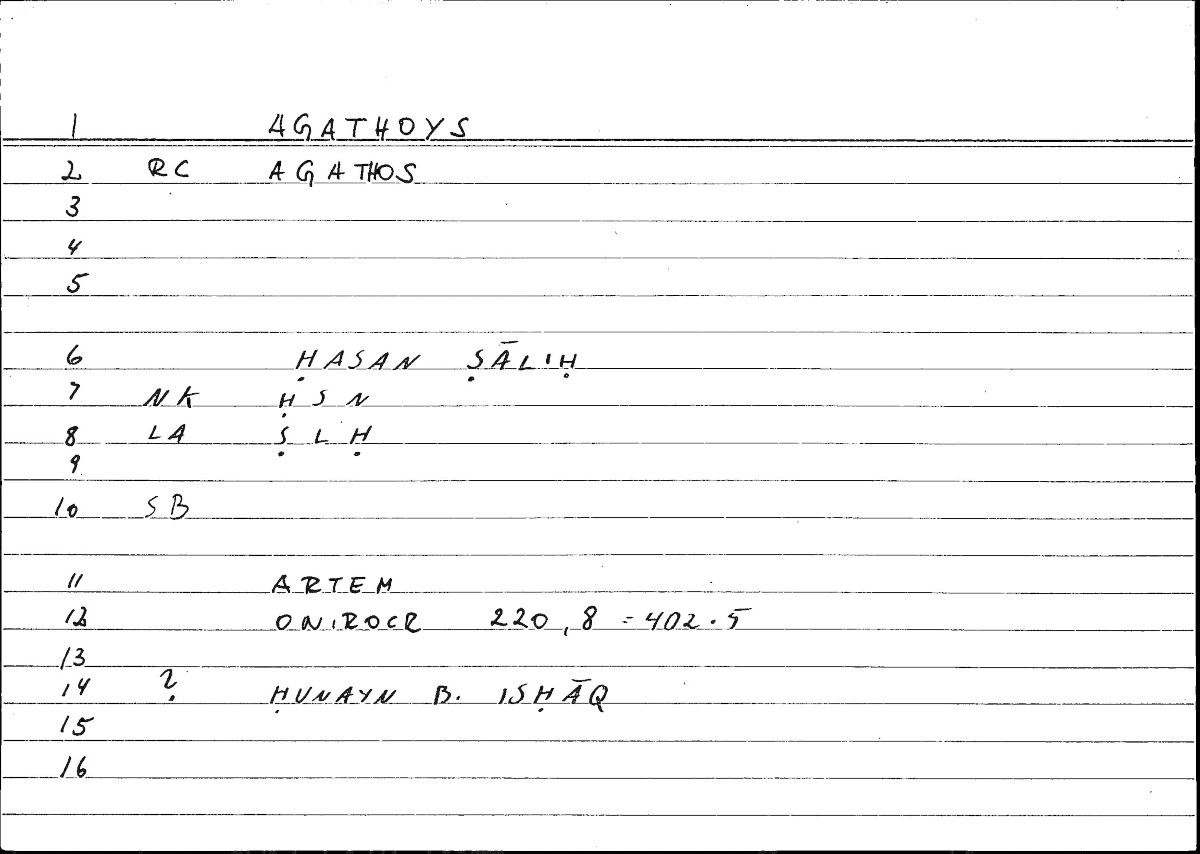 1 AGATHOYS
2 RC AGATHOS
3
4
5
6 ḤASAN ṢĀLIḤ
7 NK ḤSN
8 LA ṢLḤ
9
10 SB
11 ARTEM
12 ONIROCR 220,8 = 402.5
13
14 ? ḤUNAYN B. ISḤĀQ
15
16